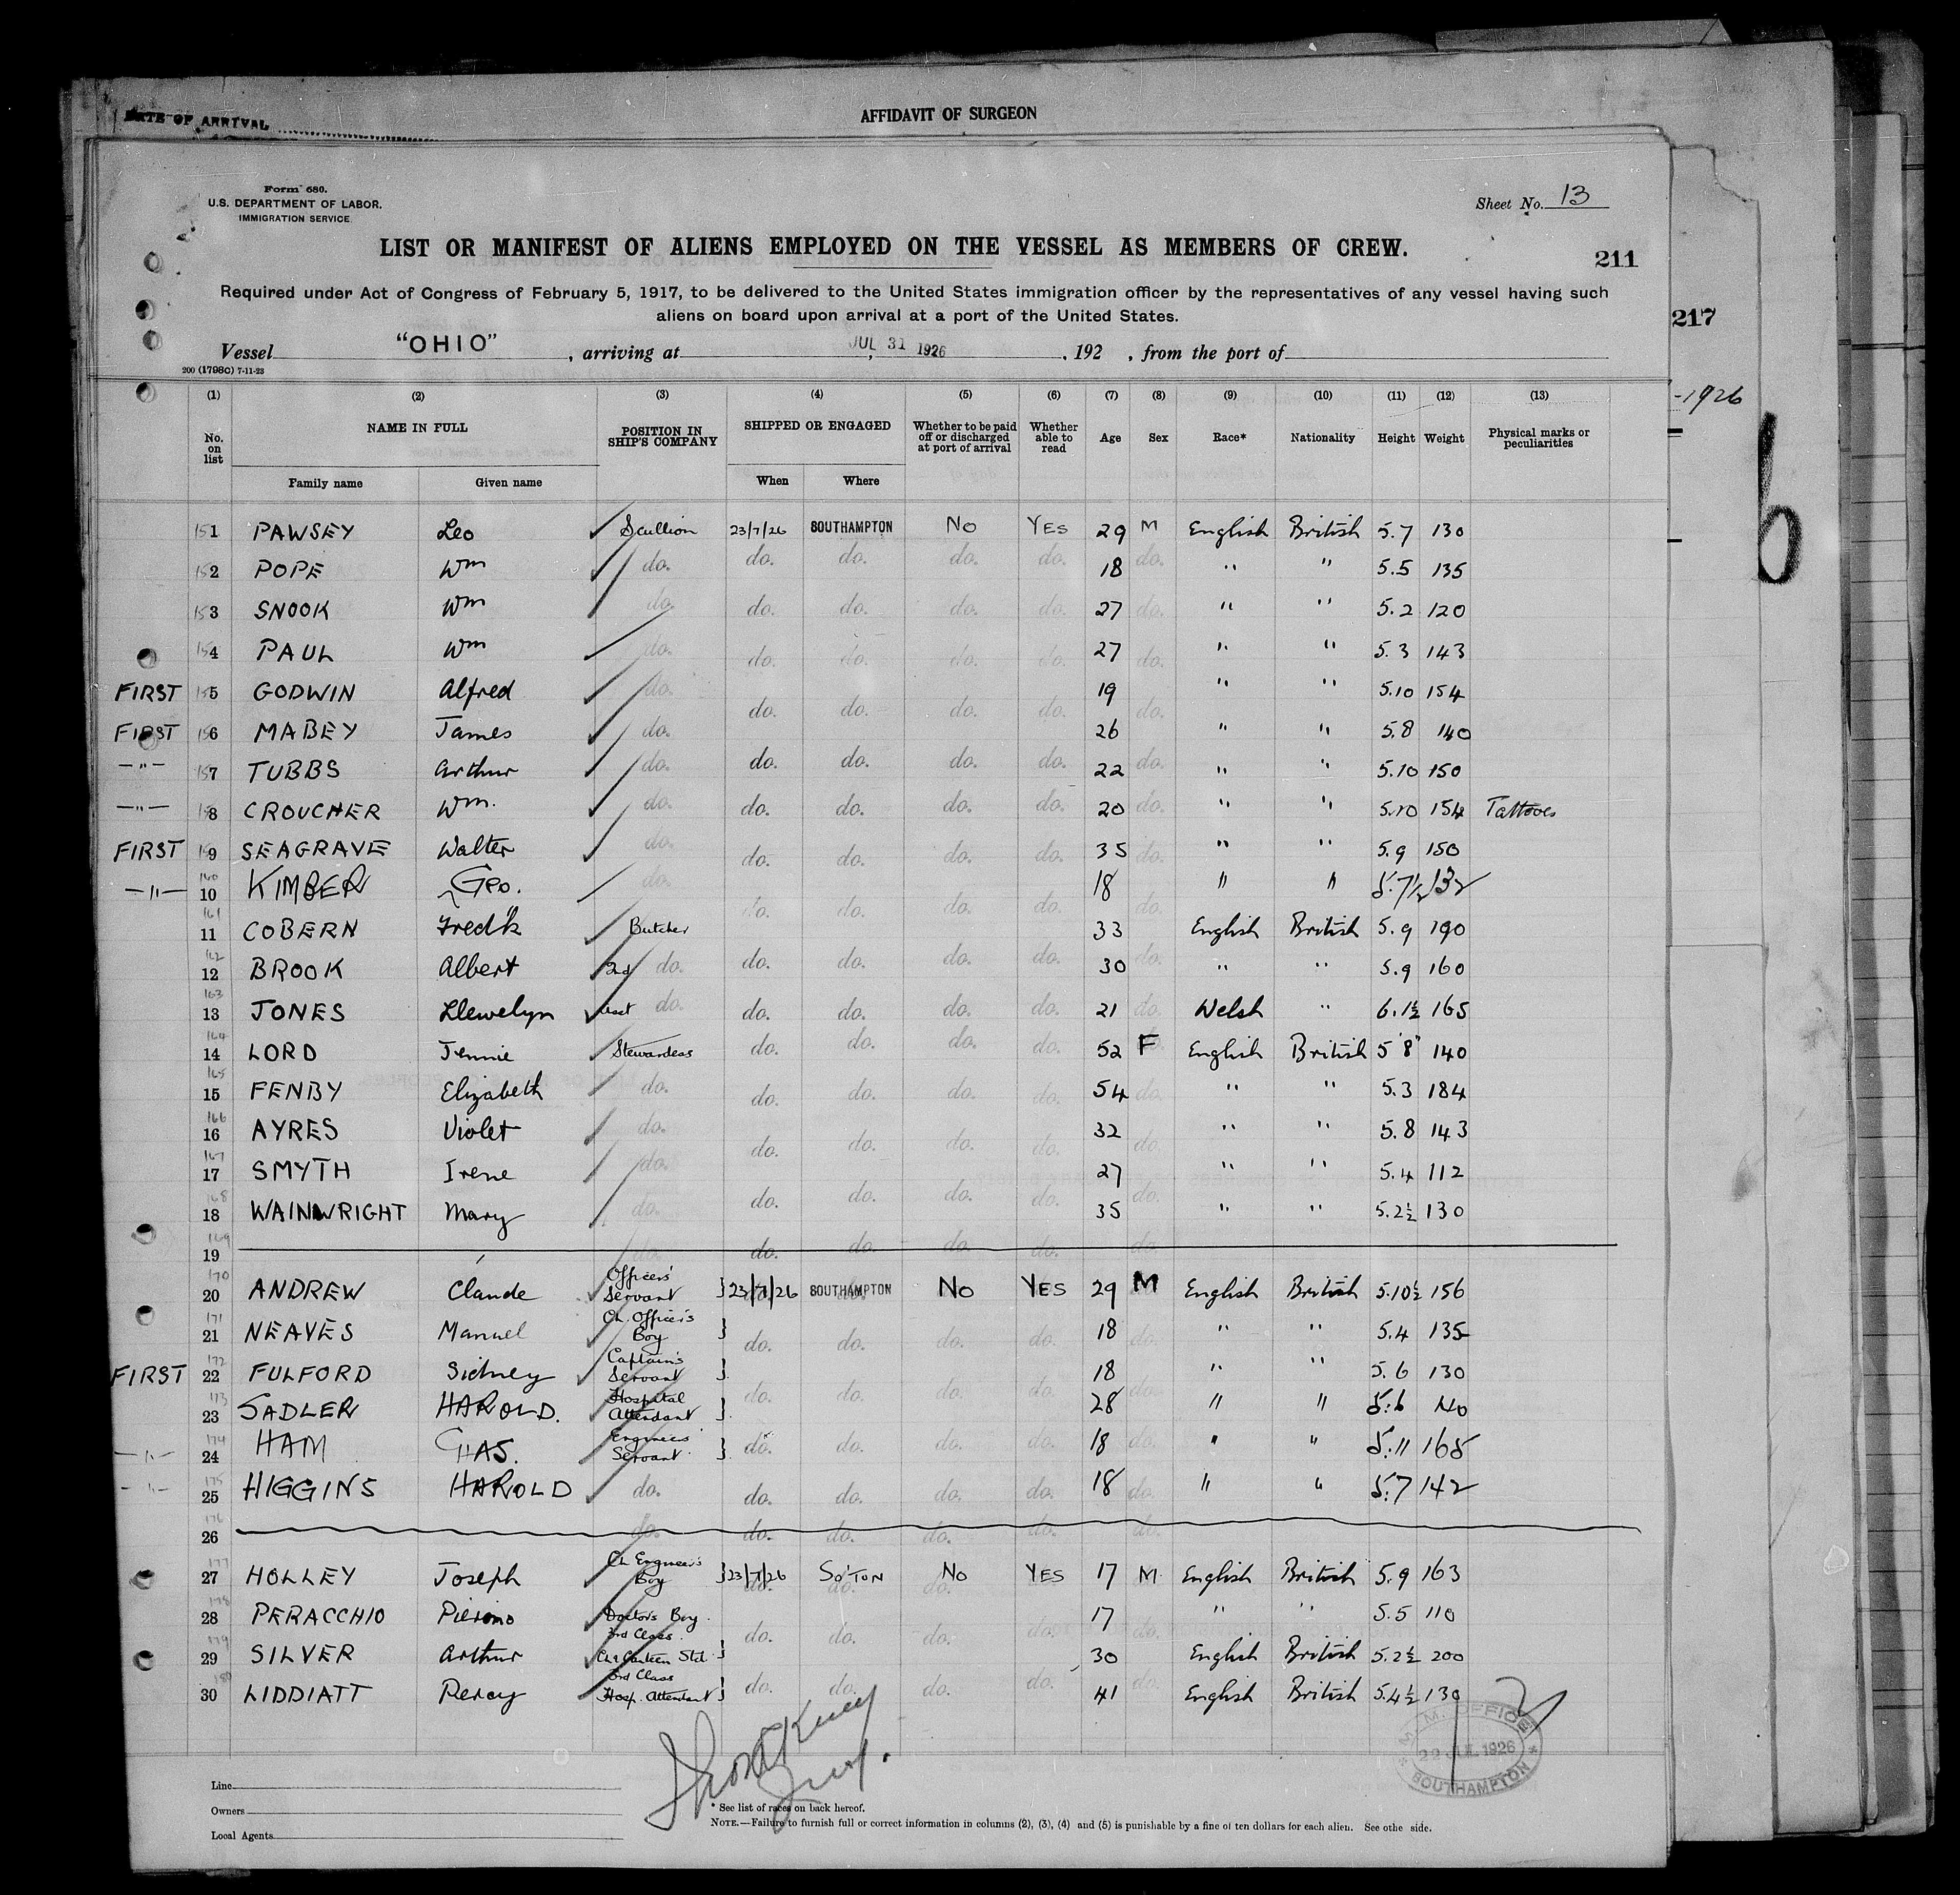 DATE OF ARRIVAL
AFFIDAVIT OF SURGEON
Form 680.
U.S. DEPARTMENT OF LABOR.
IMMIGRATION SERVICE
Sheet No. 13
LIST OR MANIFEST OF ALIENS EMPLOYED ON THE VESSEL AS MEMBERS OF CREW.
211
217
Required under Act of Congress of February 5, 1917, to be delivered to the United States immigration officer by the representatives of any vessel having such
aliens on board upon arrival at a port of the United States.
Vessel "OHIO", arriving at JUL 31 1926, 192 , from the port of
200 (1798c) 7-11-23
-1926
(1) (2) (3) (4) (5) (6) (7) (8) (9) (10) (11) (12) (13)
No. on list NAME IN FULL POSITION IN SHIP'S COMPANY SHIPPED OR ENGAGED Whether to be paid off or discharged at port of arrival Whether able to read Age Sex Race* Nationality Height Weight Physical marks or peculiarities
Family name Given name When Where
151 PAWSEY Leo Scullion 23/7/26 SOUTHAMPTON No YES 29 M English British 5.7 130
152 POPE Wm do. do. do. do. do. 18 do. " " 5.5 135
153 SNOOK Wm do. do. do. do. do. 27 do. " " 5.2 120
154 PAUL Wm do. do. do. do. do. 27 do. " " 5.3 143
FIRST 155 GODWIN Alfred do. do. do. do. do. 19 do. " " 5.10 154
FIRST 156 MABEY James do. 26 " " 5.8 140
-"- 157 TUBBS Arthur do. do. do. do. do. 22 do. " " 5.10 150
-"- 158 CROUCHER Wm. do. do. do. do. do. 20 do. " " 5.10 154 Tattoos
FIRST 159 SEAGRAVE Walter do. do. do. do. do. 35 do. " " 5.9 150
-"- 160 10 KIMBER Geo. do. do. do. do. do. 18 do. " " 5.7½ 132
161 11 COBERN Fred'k Butcher 33 English British 5.9 190
162 12 BROOK Albert 2nd do. do. do. do. do. 30 do. " " 5.9 160
163 13 JONES Llewelyn Asst do. do. do. do. do. 21 do. Welsh " 6.1½ 165
164 14 LORD Jennie Stewardess do. do. do. do. 52 F English British 5'8" 140
165 15 FENBY Elizabeth do. do. do. do. do. 54 do. " " 5.3 184
166 16 AYRES Violet do. do. do. do. do. 32 do. " " 5.8 143
167 17 SMYTH Irene do. 27 " " 5.4 112
168 18 WAINWRIGHT Mary do. do. do. do. do. 35 do. " " 5.2½ 130
169 19 do. do. do. do. do. do.
170 20 ANDREW Claude Officers' Servant 23/7/26 SOUTHAMPTON No YES 29 M English British 5.10½ 156
171 21 NEAVES Manuel Ch. Officer's Boy do. do. do. do. 18 do. " " 5.4 135
172 22 FULFORD Sidney Captain's Servant 18 " " 5.6 130
FIRST
173 23 SADLER HAROLD. Hospital Attendant do. do. do. do. 28 do. " " 5.6
-"- 174 24 HAM CHAS. Engineers Servant do. do. do. do. 18 do. " " 5.11 168
-"- 175 25 HIGGINS HAROLD do. do. do. do. do. 18 do. " " 5.7 142
176 26 do. do. do. do. do. do.
177 27 HOLLEY Joseph Ch Engineer's Boy 23/7/26 SO'TON No YES 17 M English British 5.9 163
178 28 PERACCHIO Pierino Doctors Boy. do. do. do. do. 17 do. " " 5.5 110
179 29 SILVER Arthur 3rd Class Ch. Canteen Std 30 English British 5.2½ 200
180 30 LIDDIATT Percy 3rd Class Hosp. Attendant do. do. do. do. 41 do. English British 5.4½ 130
M.M. OFFICE
22 JUL 1926
SOUTHAMPTON
Line
Owners
Local Agents
* See list of races on back hereof.
NOTE.—Failure to furnish full or correct information in columns (2), (3), (4) and (5) is punishable by a fine of ten dollars for each alien. See othe side.